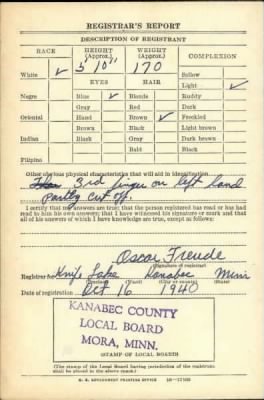 REGISTRAR'S REPORT
DESCRIPTION OF REGISTRANT
RACE HEIGHT (Approx.) WEIGHT (Approx.) COMPLEXION
5' 10" 170 Sallow
White ✓ EYES HAIR Light ✓
Negro Blue ✓ Blonde Ruddy
Gray Red Dark
Oriental Hazel Brown ✓ Freckled
Brown Black Light brown
Indian Black Gray Dark brown
Bald Black
Filipino
Other obvious physical characteristics that will aid in identification
3rd finger on left hand
partly cut off.
I certify that my answers are true; that the person registered has read or has had
read to him his own answers; that I have witnessed his signature or mark and that
all of his answers of which I have knowledge are true, except as follows:
Oscar Freude
(Signature of registrar)
Registrar for Knife Lake Kanabec Minn
(Precinct) (County) (State)
Date of registration Oct 16 1940
KANABEC COUNTY
LOCAL BOARD
MORA, MINN.
(STAMP OF LOCAL BOARD)
(The stamp of the Local Board having jurisdiction of the registrant
shall be placed in the above space.)
U. S. GOVERNMENT PRINTING OFFICE 16—17105